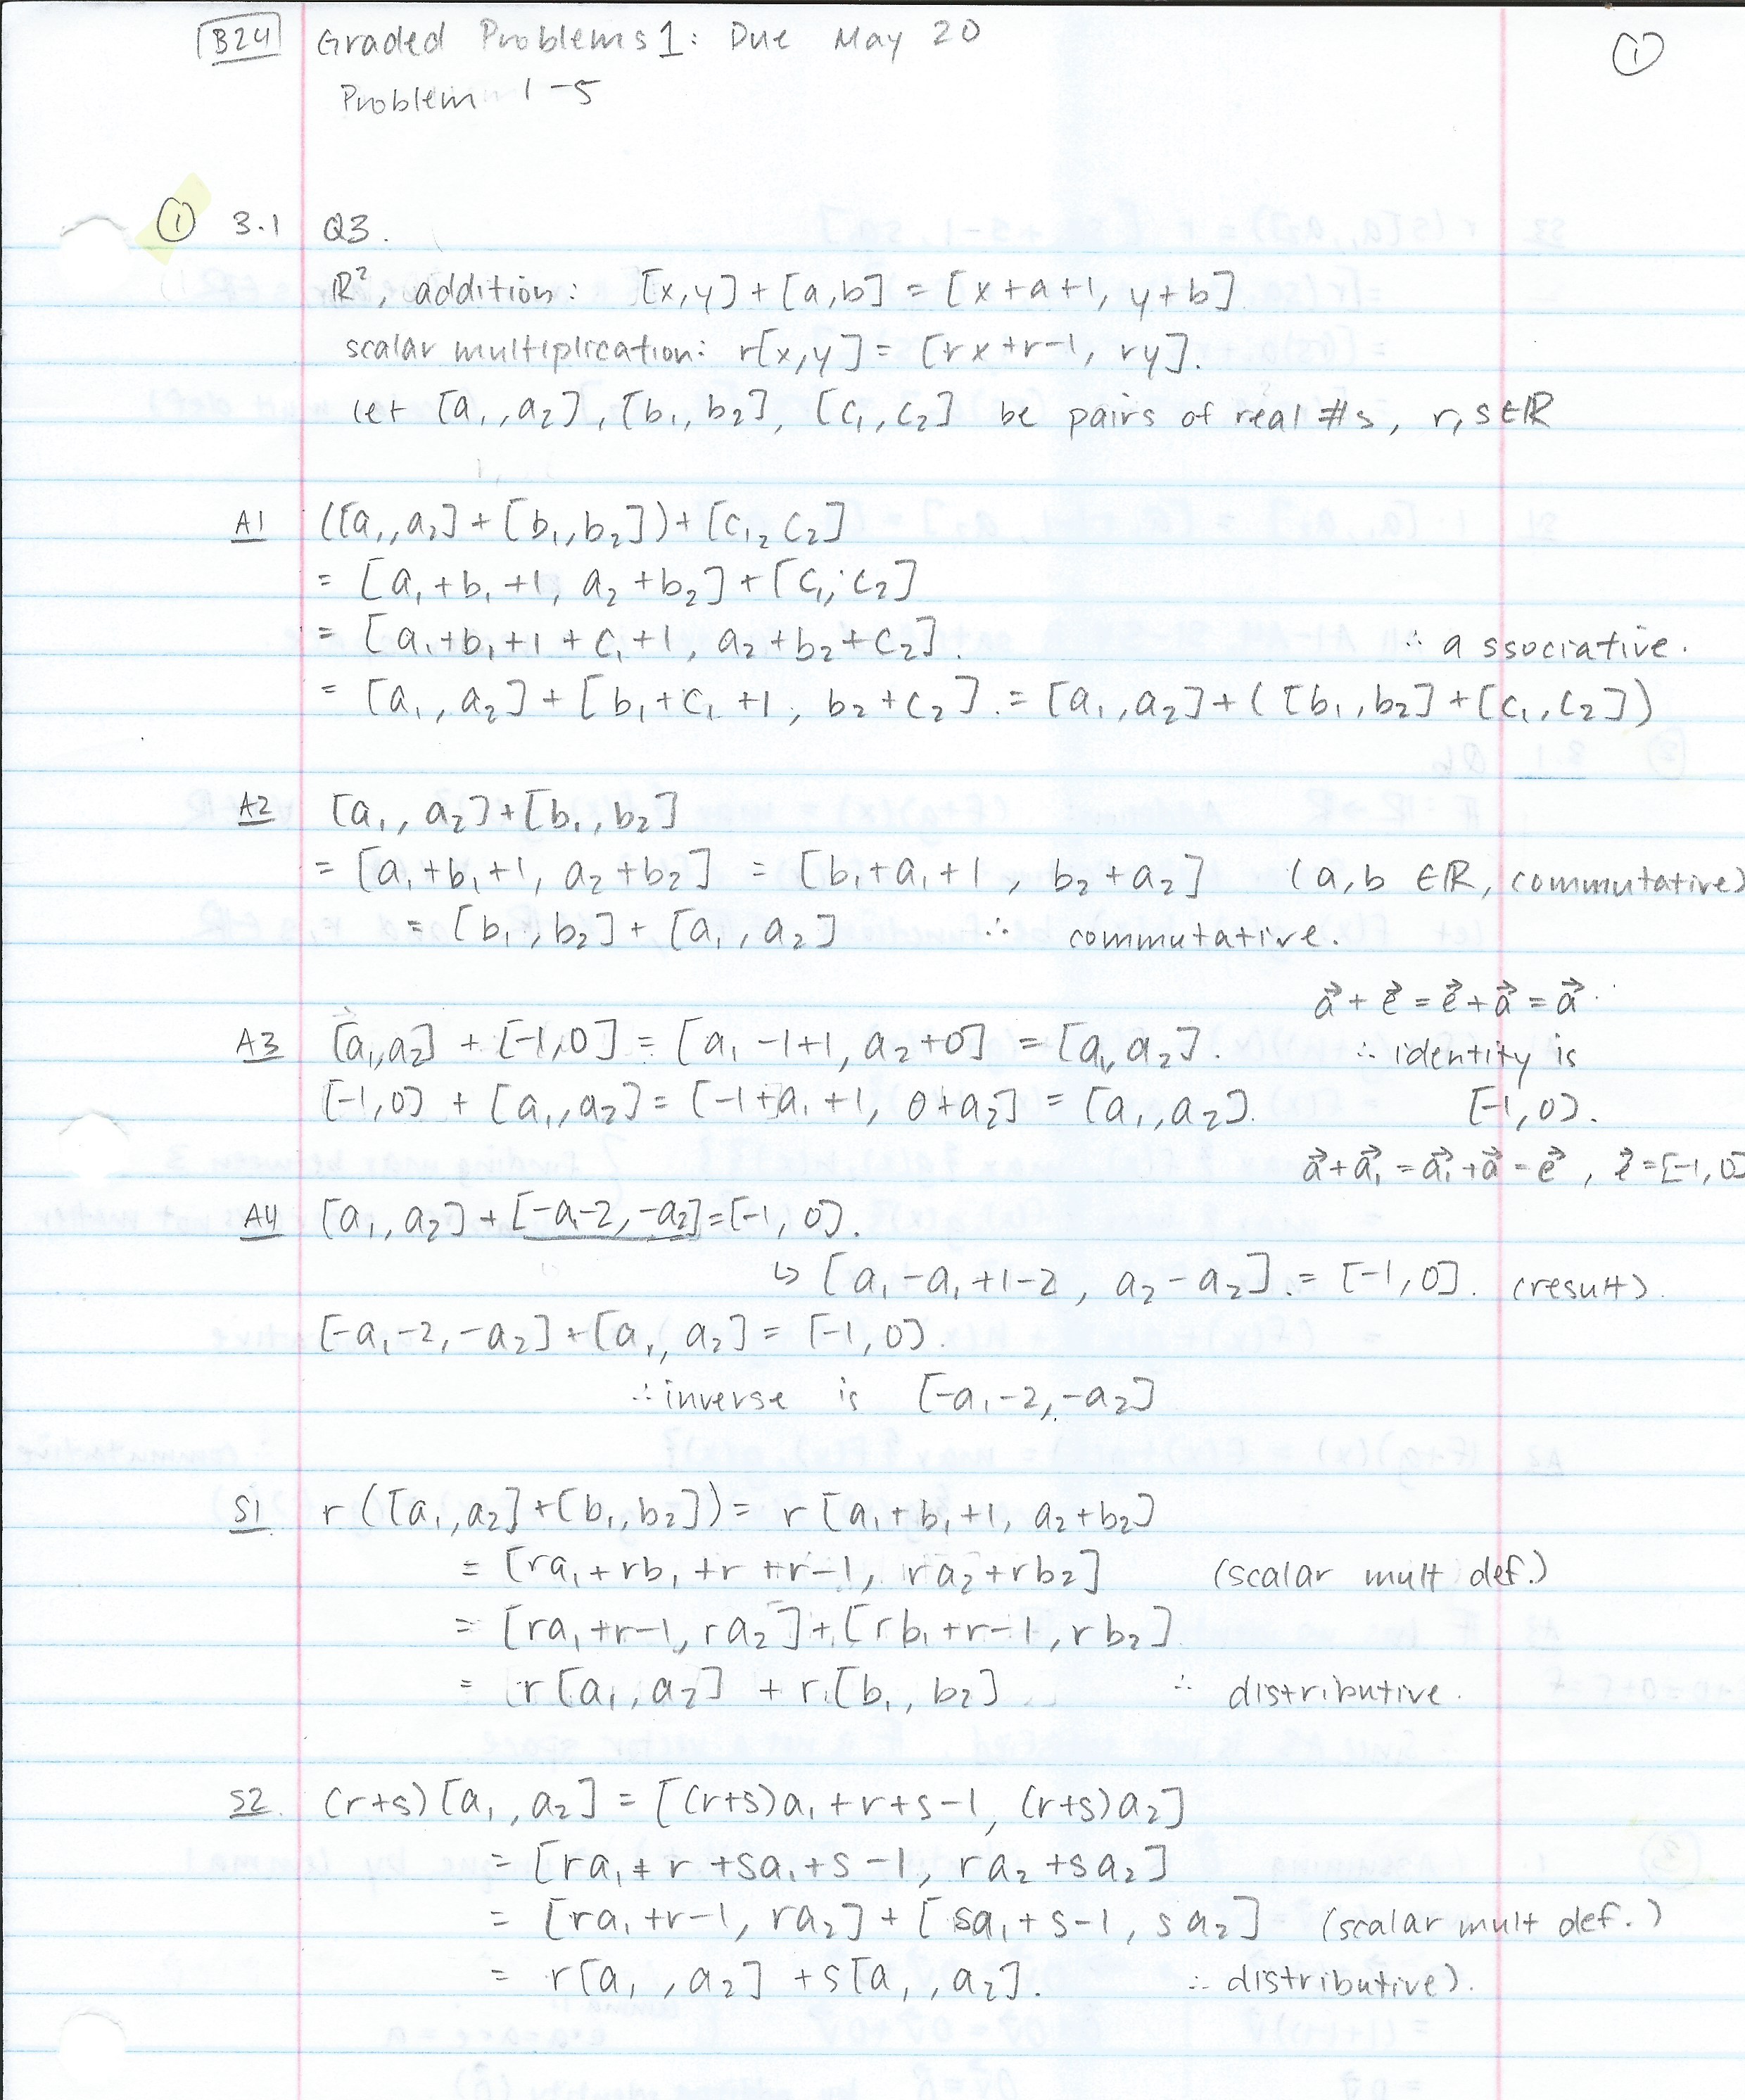 B24 Graded Problems 1: Due May 20 ①
Problem 1-5
① 3.1 Q3.
ℝ², addition: [x,y]+[a,b] = [x+a+1, y+b].
scalar multiplication: r[x,y] = [rx+r-1, ry].
let [a₁,a₂], [b₁,b₂], [c₁,c₂] be pairs of real #s, r,s∈ℝ
A1 ([a₁,a₂]+[b₁,b₂])+[c₁,c₂]
= [a₁+b₁+1, a₂+b₂]+[c₁,c₂]
= [a₁+b₁+1+c₁+1, a₂+b₂+c₂]. ∴ associative.
= [a₁,a₂]+[b₁+c₁+1, b₂+c₂]. = [a₁,a₂]+([b₁,b₂]+[c₁,c₂])
A2 [a₁,a₂]+[b₁,b₂]
= [a₁+b₁+1, a₂+b₂] = [b₁+a₁+1, b₂+a₂] (a,b ∈ℝ, commutative)
= [b₁,b₂]+[a₁,a₂] ∴ commutative.
a⃗ + e⃗ = e⃗ + a⃗ = a⃗.
A3 [a₁,a₂] + [-1,0] = [a₁-1+1, a₂+0] = [a₁,a₂]. ∴ identity is
[-1,0] + [a₁,a₂] = [-1+a₁+1, 0+a₂] = [a₁,a₂]. [-1,0].
a⃗+a⃗₁ = a⃗₁+a⃗ = e⃗, e⃗=[-1,0]
A4 [a₁,a₂]+[-a₁-2,-a₂]=[-1,0].
↳ [a₁-a₁+1-2, a₂-a₂]. = [-1,0]. (result).
[-a₁-2,-a₂]+[a₁,a₂] = [-1,0].
∴ inverse is [-a₁-2,-a₂]
S1 r([a₁,a₂]+[b₁,b₂]) = r[a₁+b₁+1, a₂+b₂]
= [ra₁+rb₁+r+r-1, ra₂+rb₂] (scalar mult def.)
= [ra₁+r-1, ra₂]+[rb₁+r-1, rb₂]
= r[a₁,a₂] + r[b₁,b₂] ∴ distributive.
S2. (r+s)[a₁,a₂] = [(r+s)a₁+r+s-1, (r+s)a₂]
= [ra₁+r+sa₁+s-1, ra₂+sa₂]
= [ra₁+r-1, ra₂]+[sa₁+s-1, sa₂] (scalar mult def.)
= r[a₁,a₂] +s[a₁,a₂]. ∴ distributive).